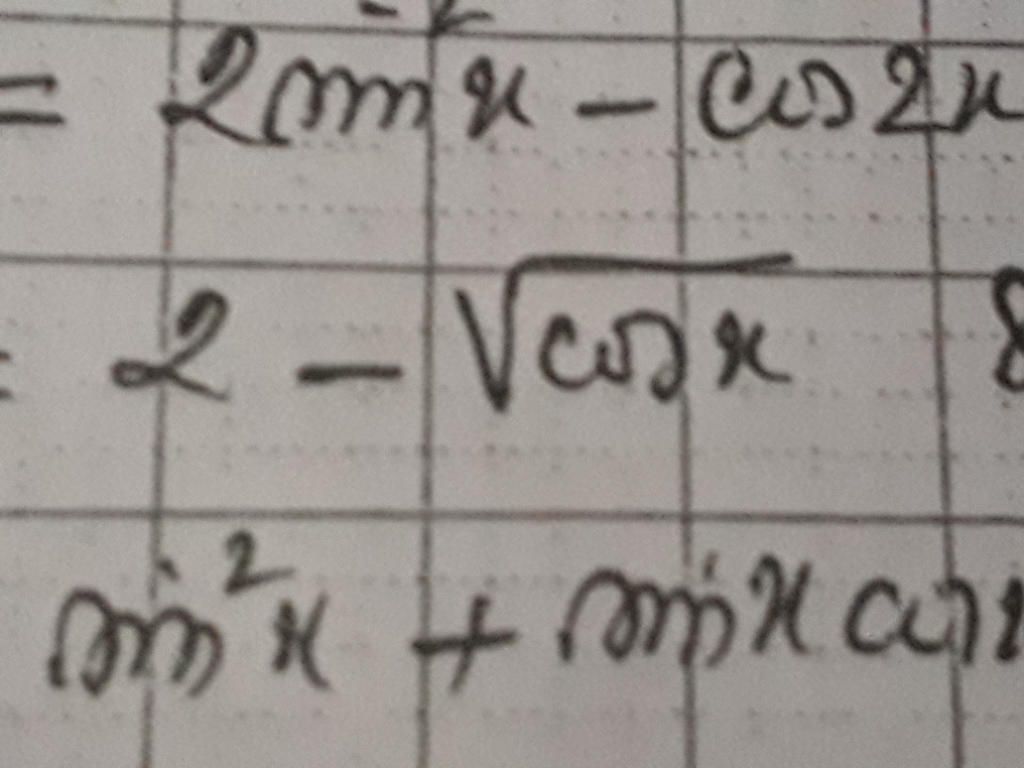 = 2 sin²x - cos 2x
= 2 - √cos x
sin²x + sin x cos